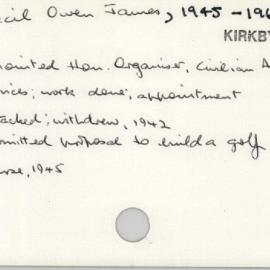 cil Owen James, 1945-196
KIRKBY
ointed Hon. Organiser, Civilian A
vices; work done; appointment
tacked; withdrew, 1942
mitted proposal to build a golf
urse, 1945